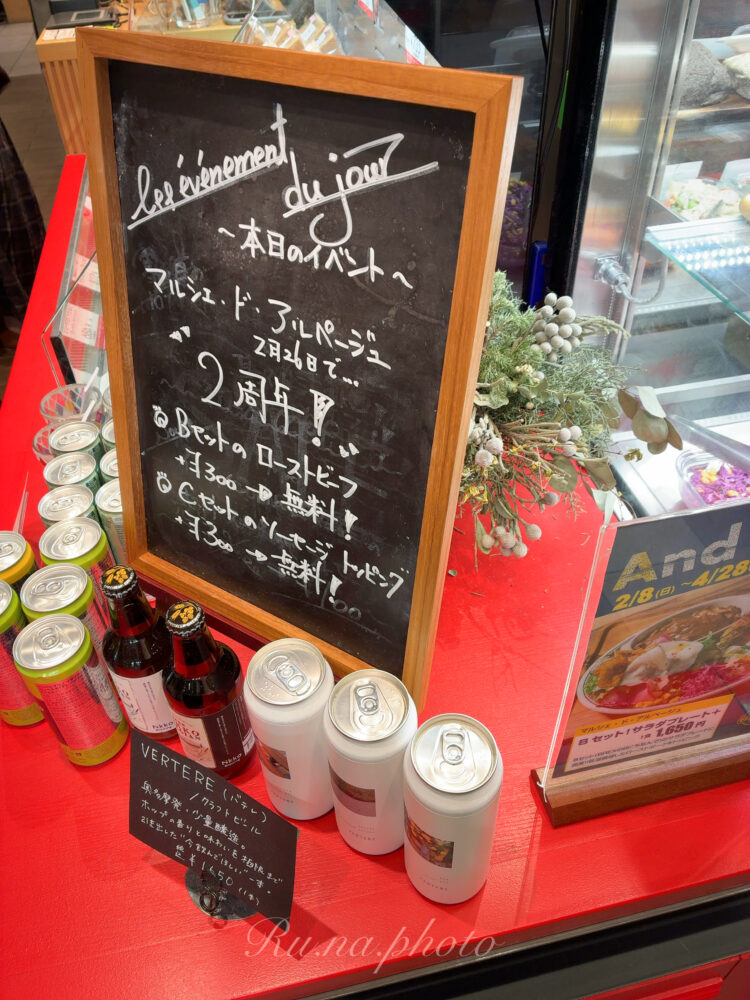 les événement
du jour
～本日のイベント～
マルシェ・ド・アルページュ
2月26日で...
"2周年!"
Bセットの ローストビーフ
+¥300→無料!
Cセットのソーセージトッピング
+¥300→無料!
VERTERE (バテレ)
/クラフトビール
奥多摩発、少量醸造。
ホップの香りと味わいを極限まで
引き出した"今飲んでほしい"一本。
¥1,150 (本)
And
2/8(日)～4/28
マルシェ・ド・アルページュ
Bセット!サラダプレート+
1,650円
Ru.na.photo